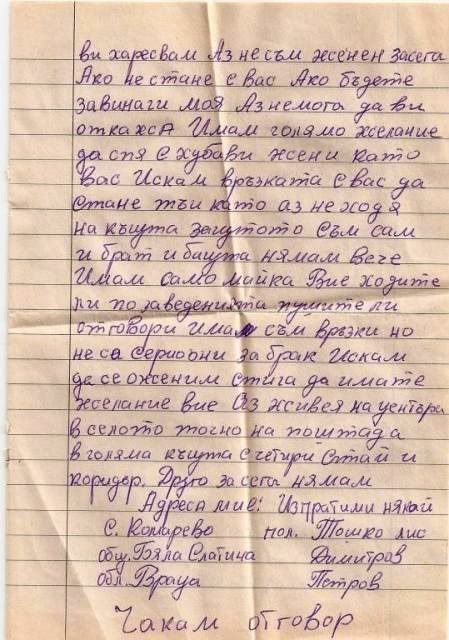 ви харесвам Аз не съм женен засега
Ако не стане с вас Ако бъдете
завинаги моя Аз немога да ви
откажа Имам голямо желание
да спя с хубави жени като
вас Искам връзката с вас да
стане тъи като аз не ходя
на къщта загутото съм сам
и брат и бащта нямам вече
Имам само майка Вие ходите
ли по заведенията пушите ли
отговори имам съм връзки но
не са сериозни за брак Искам
да се оженим стига да имате
желание вие Аз живея на центъра
в селото точно на поштада
в голяма къщта с четири стаи и
коридор. Друго за сега нямам
Адреса ми е: Изпрати ми някой
с. Комарево пол. Тошко лис
общ. Бяла Слатина Димитров
обл. Враца Петров
Чакам отговор